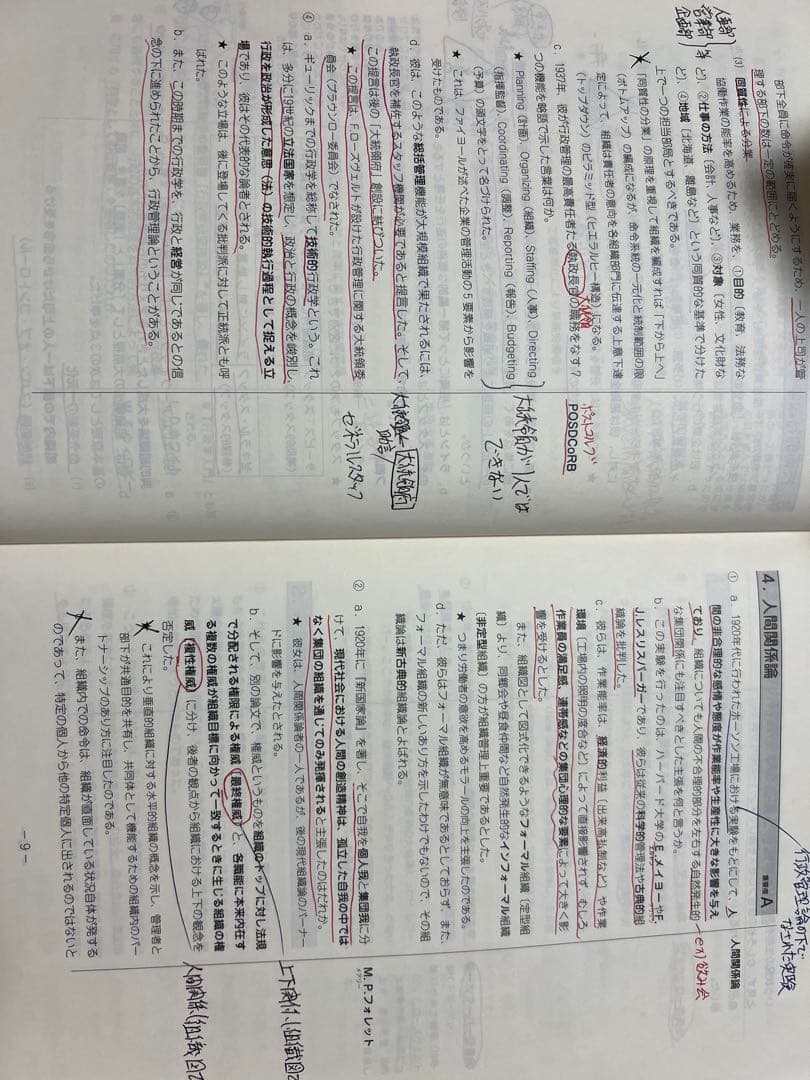 部下全員に命令が確実に届くようにするため、一人の上司が管
理する部下の数は一定の範囲にとどめる。
人事部
営業部
企画部
等
(3) 同質性による分業
協働作業の能率を高めるため、業務を、①目的(教育、法務な
ど)、②仕事の方法(会計、人事など)、③対象(女性、文化財な
ど)、④地域(北海道、離島など)という同質的な基準で分けた
上で一つの担当部局とするべきである。
★ 「同質性の分業」の原理を重視して組織を編成すれば「下から上へ」
(ボトムアップ)の編成になるが、命令系統の一元化と統制範囲の限
定によって、組織は責任者の意向を各組織部門に伝達する上意下達
(トップダウン)のピラミッド型(ヒエラルヒー構造)になる。
大統領
c. 1937年、彼が行政管理の最高責任者たる執政長官の職務をなす7
つの機能を略語で示した言葉は何か。
ポストコルブ
POSDCoRB
★ Planning(計画)、Organizing(組織)、Staffing(人事)、Directing
(指揮監督)、Coordinating(調整)、Reporting(報告)、Budgeting
(予算)の頭文字をとって名づけられた。
大統領が1人では
できない
★ これは、ファイヨールが述べた企業の管理活動の5要素から影響を
受けたものである。
d. 彼は、このような総括管理機能が大規模組織で果たされるには、
執政長官を補佐するスタッフ機関が必要であると提言した。そして、
この提言は後の「大統領府」創設に結びついた。
大統領へ
助言
大統領府
ゼネラルスタッフ
★ この提言は、F.ローズヴェルトが設けた行政管理に関する大統領委
員会(ブラウンロー委員会)でなされた。
④ a. ギューリックまでの行政学を総称して技術的行政学という。これ
は、多分に19世紀の立法国家を想定し、政治と行政の概念を峻別し、
行政を政治が形成した意思(法)の技術的執行過程として捉える立
場であり、彼はその代表的な論者とされる。
★ このような立場は、後に登場してくる批判派に対して正統派とも呼
ばれた。
b. また、この時期までの行政学を、行政と経営が同じであるとの信
念の下に進められたことから、行政管理論ということがある。
4. 人間関係論
重要度 A
行政管理論の下で
なされた実験
① a. 1920年代に行われたホーソン工場における実験をもとにして、人
間の非合理的な感情や態度が作業能率や生産性に大きな影響を与え
ており、組織についても人間の不合理的部分を左右する自然発生的
な集団関係にも注目すべきとした主張を何と言うか。
人間関係論
ex) 飲み会
b. この実験を行ったのは、ハーバード大学のE.メイヨーやF.
J.レスリスバーガーであり、彼らは従来の科学的管理法や古典的組
織論を批判した。
c. 彼らは、作業能率は、経済的利益(出来高払制など)や作業
環境(工場内の照明の度合など)によって直接影響されず、むしろ
作業員の満足感、連帯感などの集団心理的な要素によって大きく影
響を受けるとした。
また、組織図として図式化できるようなフォーマル組織(定型組
織)より、同郷会や昼食仲間など自然発生的なインフォーマル組織
(非定型組織)の方が組織管理上重要であるとした。
★ つまり労働者の意欲を高めるモラールの向上を主張したのである。
d. ただ、彼らはフォーマル組織が無意味であるとしておらず、また、
フォーマル組織の新しいあり方を示したわけでもないので、その組
織論は新古典的組織論とよばれる。
② a. 1920年に「新国家論」を著し、そこで自我を個人我と集団我に分
けて、現代社会における人間の創造精神は、孤立した自我の中では
なく集団の組織を通じてのみ発揮されると主張したのはだれか。
M.P.フォレット
メアリー
★ 彼女は、人間関係論者の一人であるが、後の現代組織論のバーナー
ドに影響を与えたとされる。
b. そして、別の論文で、権威というものを組織のトップに対し法規
で分配される権限による権威(最終権威)と、各職能に本来内在す
る複数の権威が組織目標に向かって一致するときに生じる組織の権
威(複性権威)に分け、後者の観点から組織における上下の概念を
否定した。
上下関係、組織図で
人間関係、組織図で
★ これにより垂直的組織に対する水平的組織の概念を示し、管理者と
部下が共通目的を共有し、共同体として機能するための組織内のパー
トナーシップのあり方に注目したのである。
★ また、組織内での命令は、組織が直面している状況自体が発する
のであって、特定の個人から他の特定個人に出されるのではないと
－9－